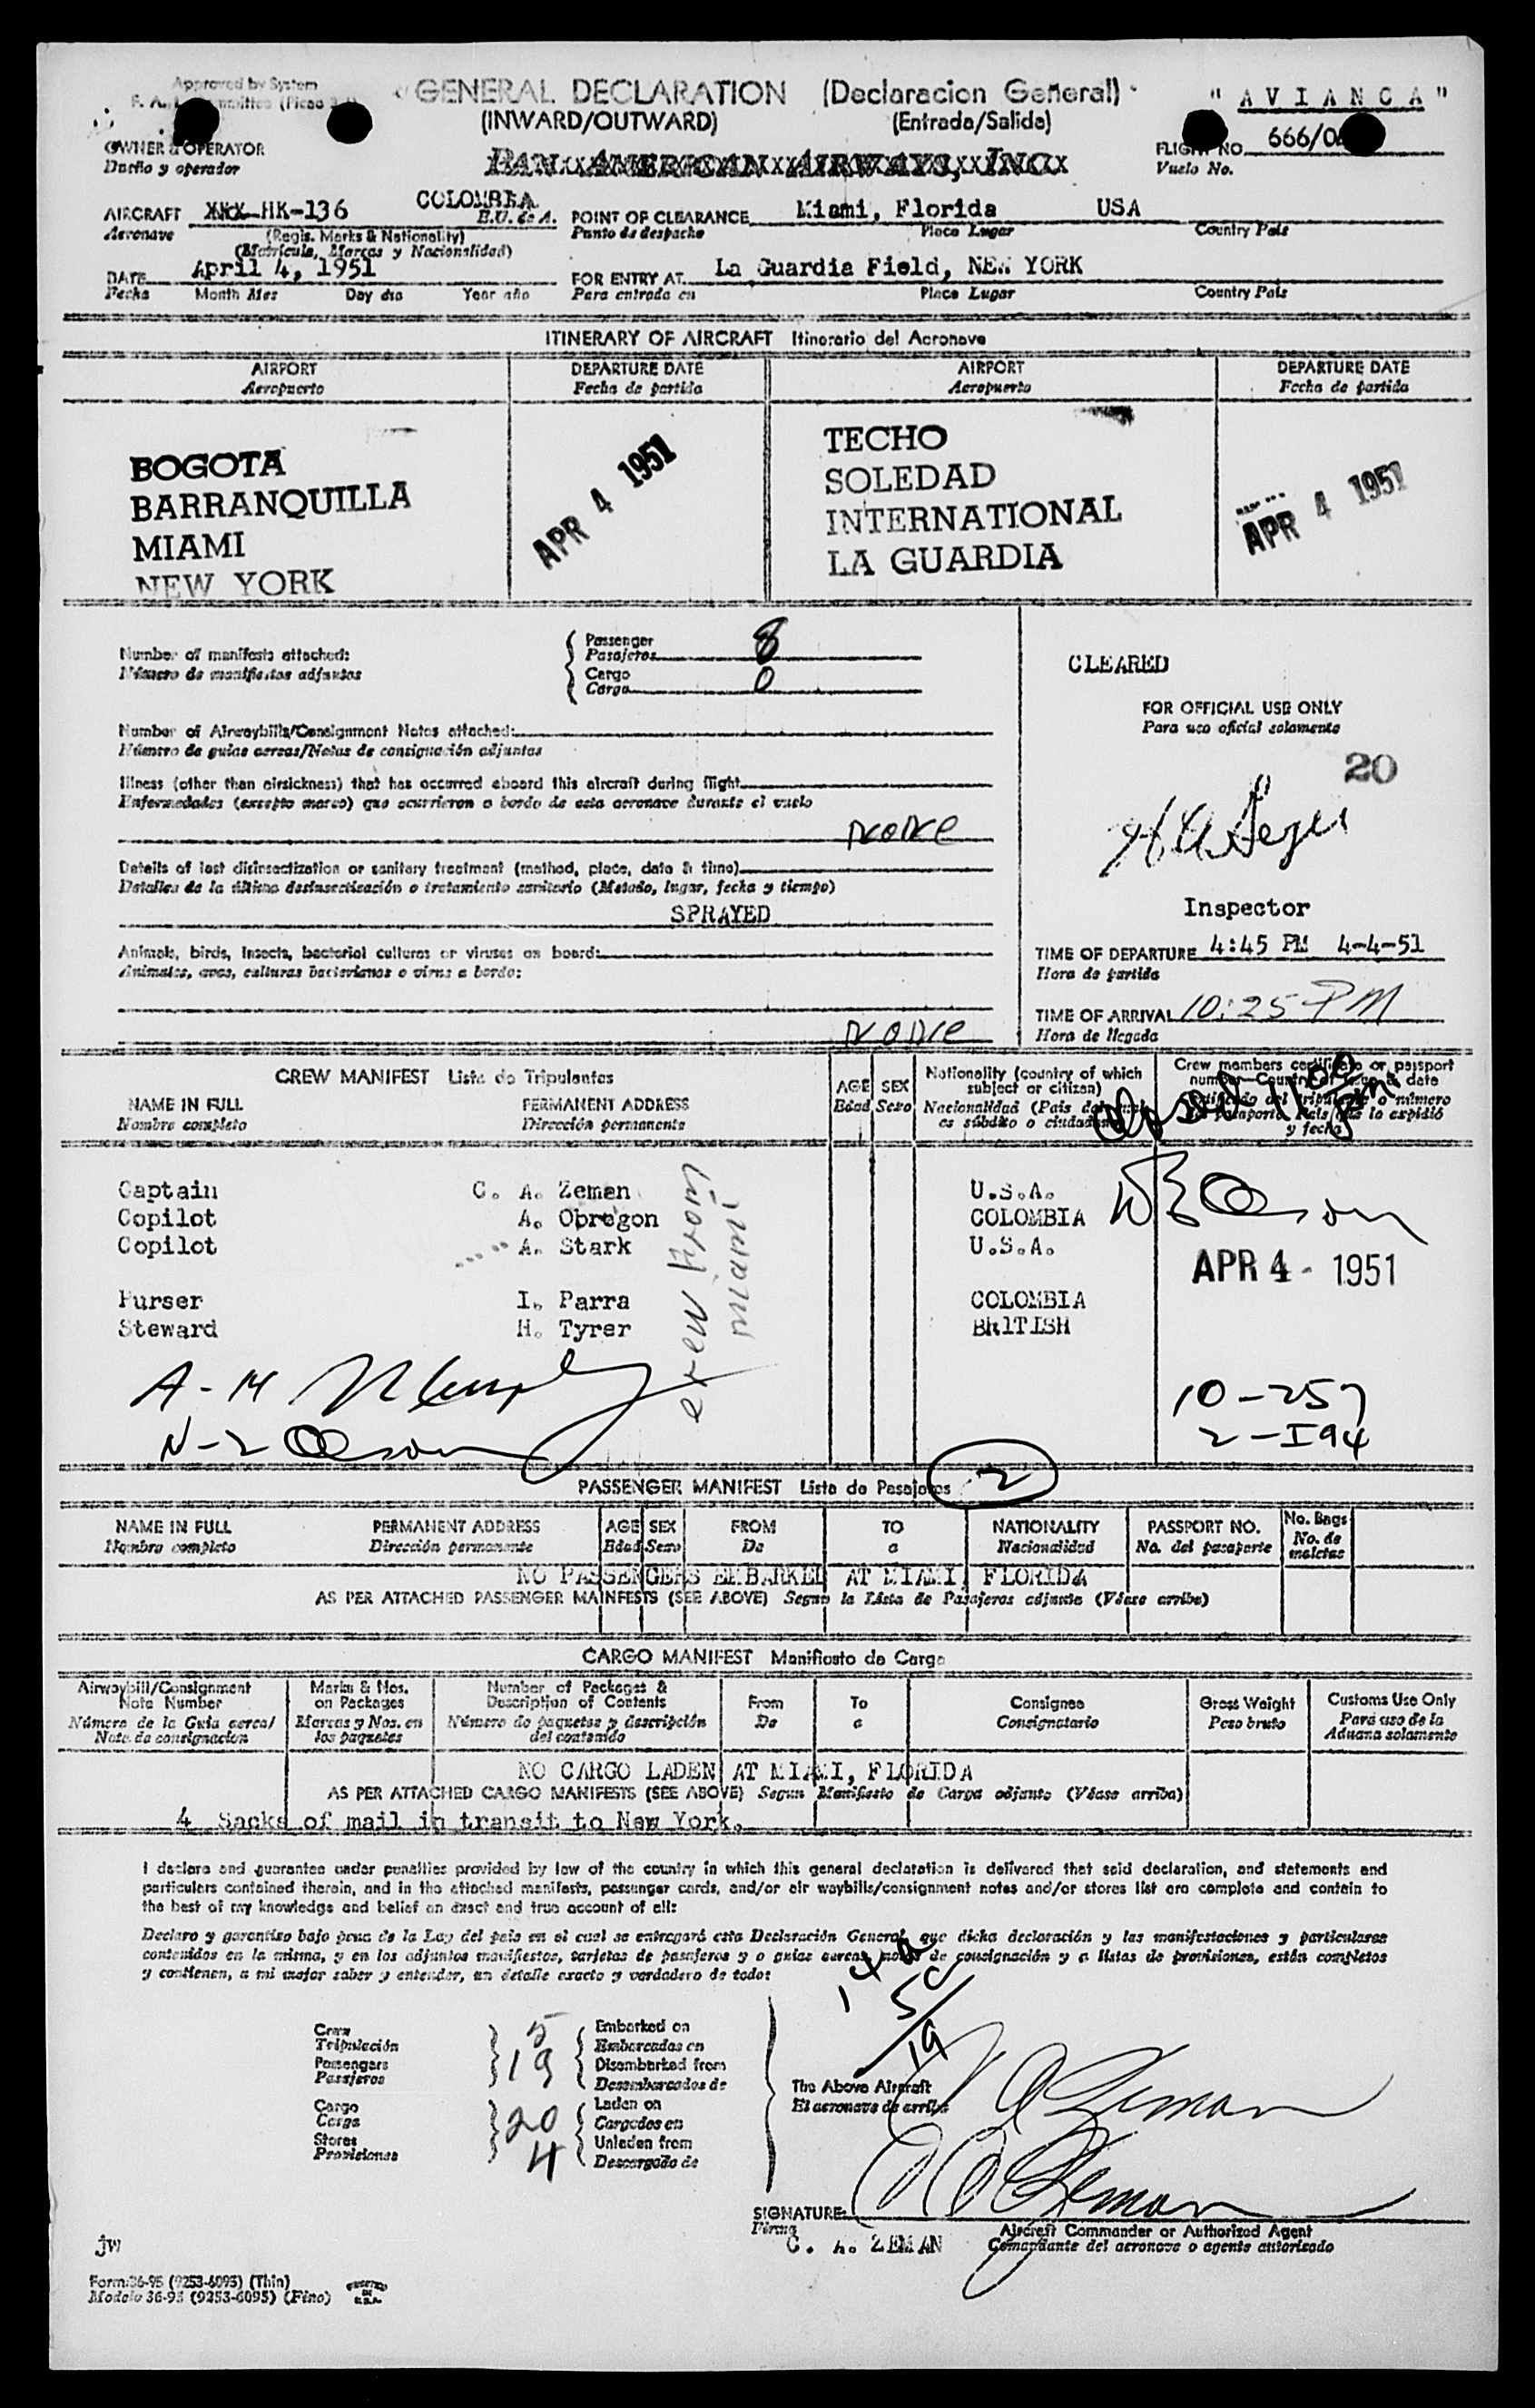 Approved by System
GENERAL DECLARATION (Declaracion General)
(INWARD/OUTWARD) (Entrada/Salida)
"AVIANCA"
OWNER & OPERATOR
Dueño y operador
PAN AMERICAN AIRWAYS, INC
FLIGHT NO. 666/
Vuelo No.
AIRCRAFT HK-136 COLOMBIA
Aeronave (Regis. Marks & Nationality) E.U. de A.
(Matrícula, Marcas y Nacionalidad)
POINT OF CLEARANCE Miami, Florida USA
Punto de despacho Place Lugar Country País
DATE April 4, 1951
Fecha Month Mes Day dia Year año
FOR ENTRY AT La Guardia Field, NEW YORK
Para entrada en Place Lugar Country País
ITINERARY OF AIRCRAFT Itinerario del Aeronave
AIRPORT DEPARTURE DATE AIRPORT DEPARTURE DATE
Aeropuerto Fecha de partida Aeropuerto Fecha de partida
BOGOTA
BARRANQUILLA
MIAMI
NEW YORK
APR 4 1951
TECHO
SOLEDAD
INTERNATIONAL
LA GUARDIA
APR 4 1951
Number of manifests attached:
Número de manifiestos adjuntos
Passenger
Pasajeros 8
Cargo
Carga 0
CLEARED
FOR OFFICIAL USE ONLY
Para uso oficial solamente
20
Number of Airwaybills/Consignment Notes attached:
Número de guías aereas/Notas de consignación adjuntas
Illness (other than airsickness) that has occurred aboard this aircraft during flight
Enfermedades (excepto mareo) que ocurrieron a bordo de esta aeronave durante el vuelo
None
Details of last disinsectization or sanitary treatment (method, place, date & time)
Detalles de la última desinsectización o tratamiento sanitario (Metodo, lugar, fecha y tiempo)
SPRAYED
Inspector
Animals, birds, insects, bacterial cultures or viruses on board:
Animales, aves, culturas bacterianas o virus a bordo:
None
TIME OF DEPARTURE 4:45 PM 4-4-51
Hora de partida
TIME OF ARRIVAL 10:25 PM
Hora de llegada
CREW MANIFEST Lista de Tripulantes
NAME IN FULL PERMANENT ADDRESS
Nombre completo Dirección permanente
AGE SEX
Edad Sexo
Nationality (country of which
subject or citizen)
Nacionalidad (País del cual
es súbdito o ciudadano)
Crew members certificate or passport
number—Country of issue & date
Certificado del tripulante o número
del pasaporte, País que lo expidió
y fecha
Captain C. A. Zeman U.S.A.
Copilot A. Obregon COLOMBIA
Copilot A. Stark U.S.A.
Purser I. Parra COLOMBIA
Steward H. Tyrer BRITISH
crew from
miami
APR 4 - 1951
10-257
2-I94
PASSENGER MANIFEST Lista de Pasajeros 2
NAME IN FULL PERMANENT ADDRESS AGE SEX FROM TO NATIONALITY PASSPORT NO. No. Bags
Nombre completo Dirección permanente Edad Sexo De a Nacionalidad No. del pasaporte No. de maletas
NO PASSENGERS EMBARKED AT MIAMI, FLORIDA
AS PER ATTACHED PASSENGER MAINFESTS (SEE ABOVE) Segun la Lista de Pasajeros adjunta (Véase arriba)
CARGO MANIFEST Manifiesto de Carga
Airwaybill/Consignment
Note Number
Número de la Guía aerea/
Nota de consignacion
Marks & Nos.
on Packages
Marcas y Nos. en
los paquetes
Number of Packages &
Description of Contents
Número de paquetes y descripción
del contenido
From
De
To
a
Consignee
Consignatario
Gross Weight
Peso bruto
Customs Use Only
Para uso de la
Aduana solamente
NO CARGO LADEN AT MIAMI, FLORIDA
AS PER ATTACHED CARGO MANIFESTS (SEE ABOVE) Segun Manifiesto de Carga adjunto (Véase arriba)
4 Sacks of mail in transit to New York.
I declare and guarantee under penalties provided by law of the country in which this general declaration is delivered that said declaration, and statements and
particulars contained therein, and in the attached manifests, passenger cards, and/or air waybills/consignment notes and/or stores list are complete and contain to
the best of my knowledge and belief an exact and true account of all:
Declaro y garantizo bajo pena de la Ley del país en el cual se entregará esta Declaración General, que dicha declaración y las manifestaciones y particulares
contenidos en la misma, y en los adjuntos manifiestos, tarjetas de pasajeros y o guías aereas, notas de consignación y o listas de provisiones, están completos
y contienen, a mi mejor saber y entender, un detalle exacto y verdadero de todo:
Crew
Tripulación 5
Passengers
Pasajeros 19
Embarked on
Embarcados en
Disembarked from
Desembarcados de
Cargo
Carga 20
Stores
Provisiones 4
Laden on
Cargados en
Unladen from
Descargado de
The Above Aircraft
El aeronave de arriba
SIGNATURE:
Firma
C. A. ZEMAN
Aircraft Commander or Authorized Agent
Comandante del aeronave o agente autorizado
jw
Form:36-95 (9253-6095) (Thin)
Modelo 36-95 (9253-6095) (Fino)
PRINTED
IN
U.S.A.